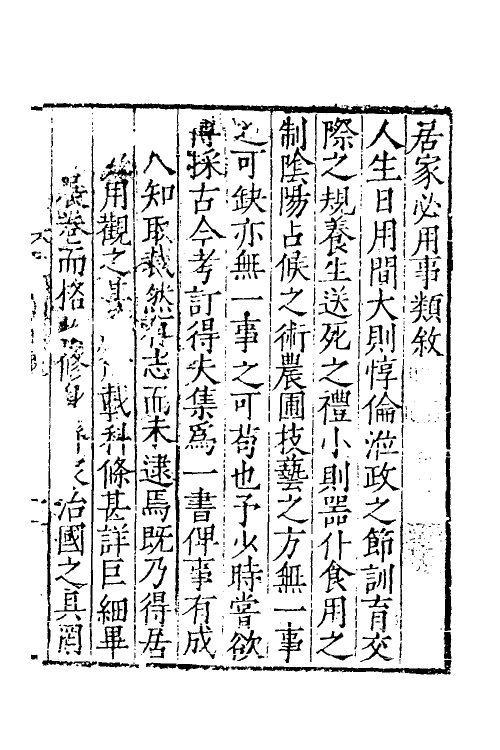 居家必用事類敘
人生日用間大則惇倫涖政之節訓育交
際之規養生送死之禮小則器什食用之
制陰陽占候之術農圃技藝之方無一事
之可缺亦無一事之可苟也予少時嘗欲
博採古今考訂得失集為一書俾事有成
人知取裁然有志而未逮焉既乃得居
用觀之其載科條甚詳巨細畢
卷而格修身治國之具罔